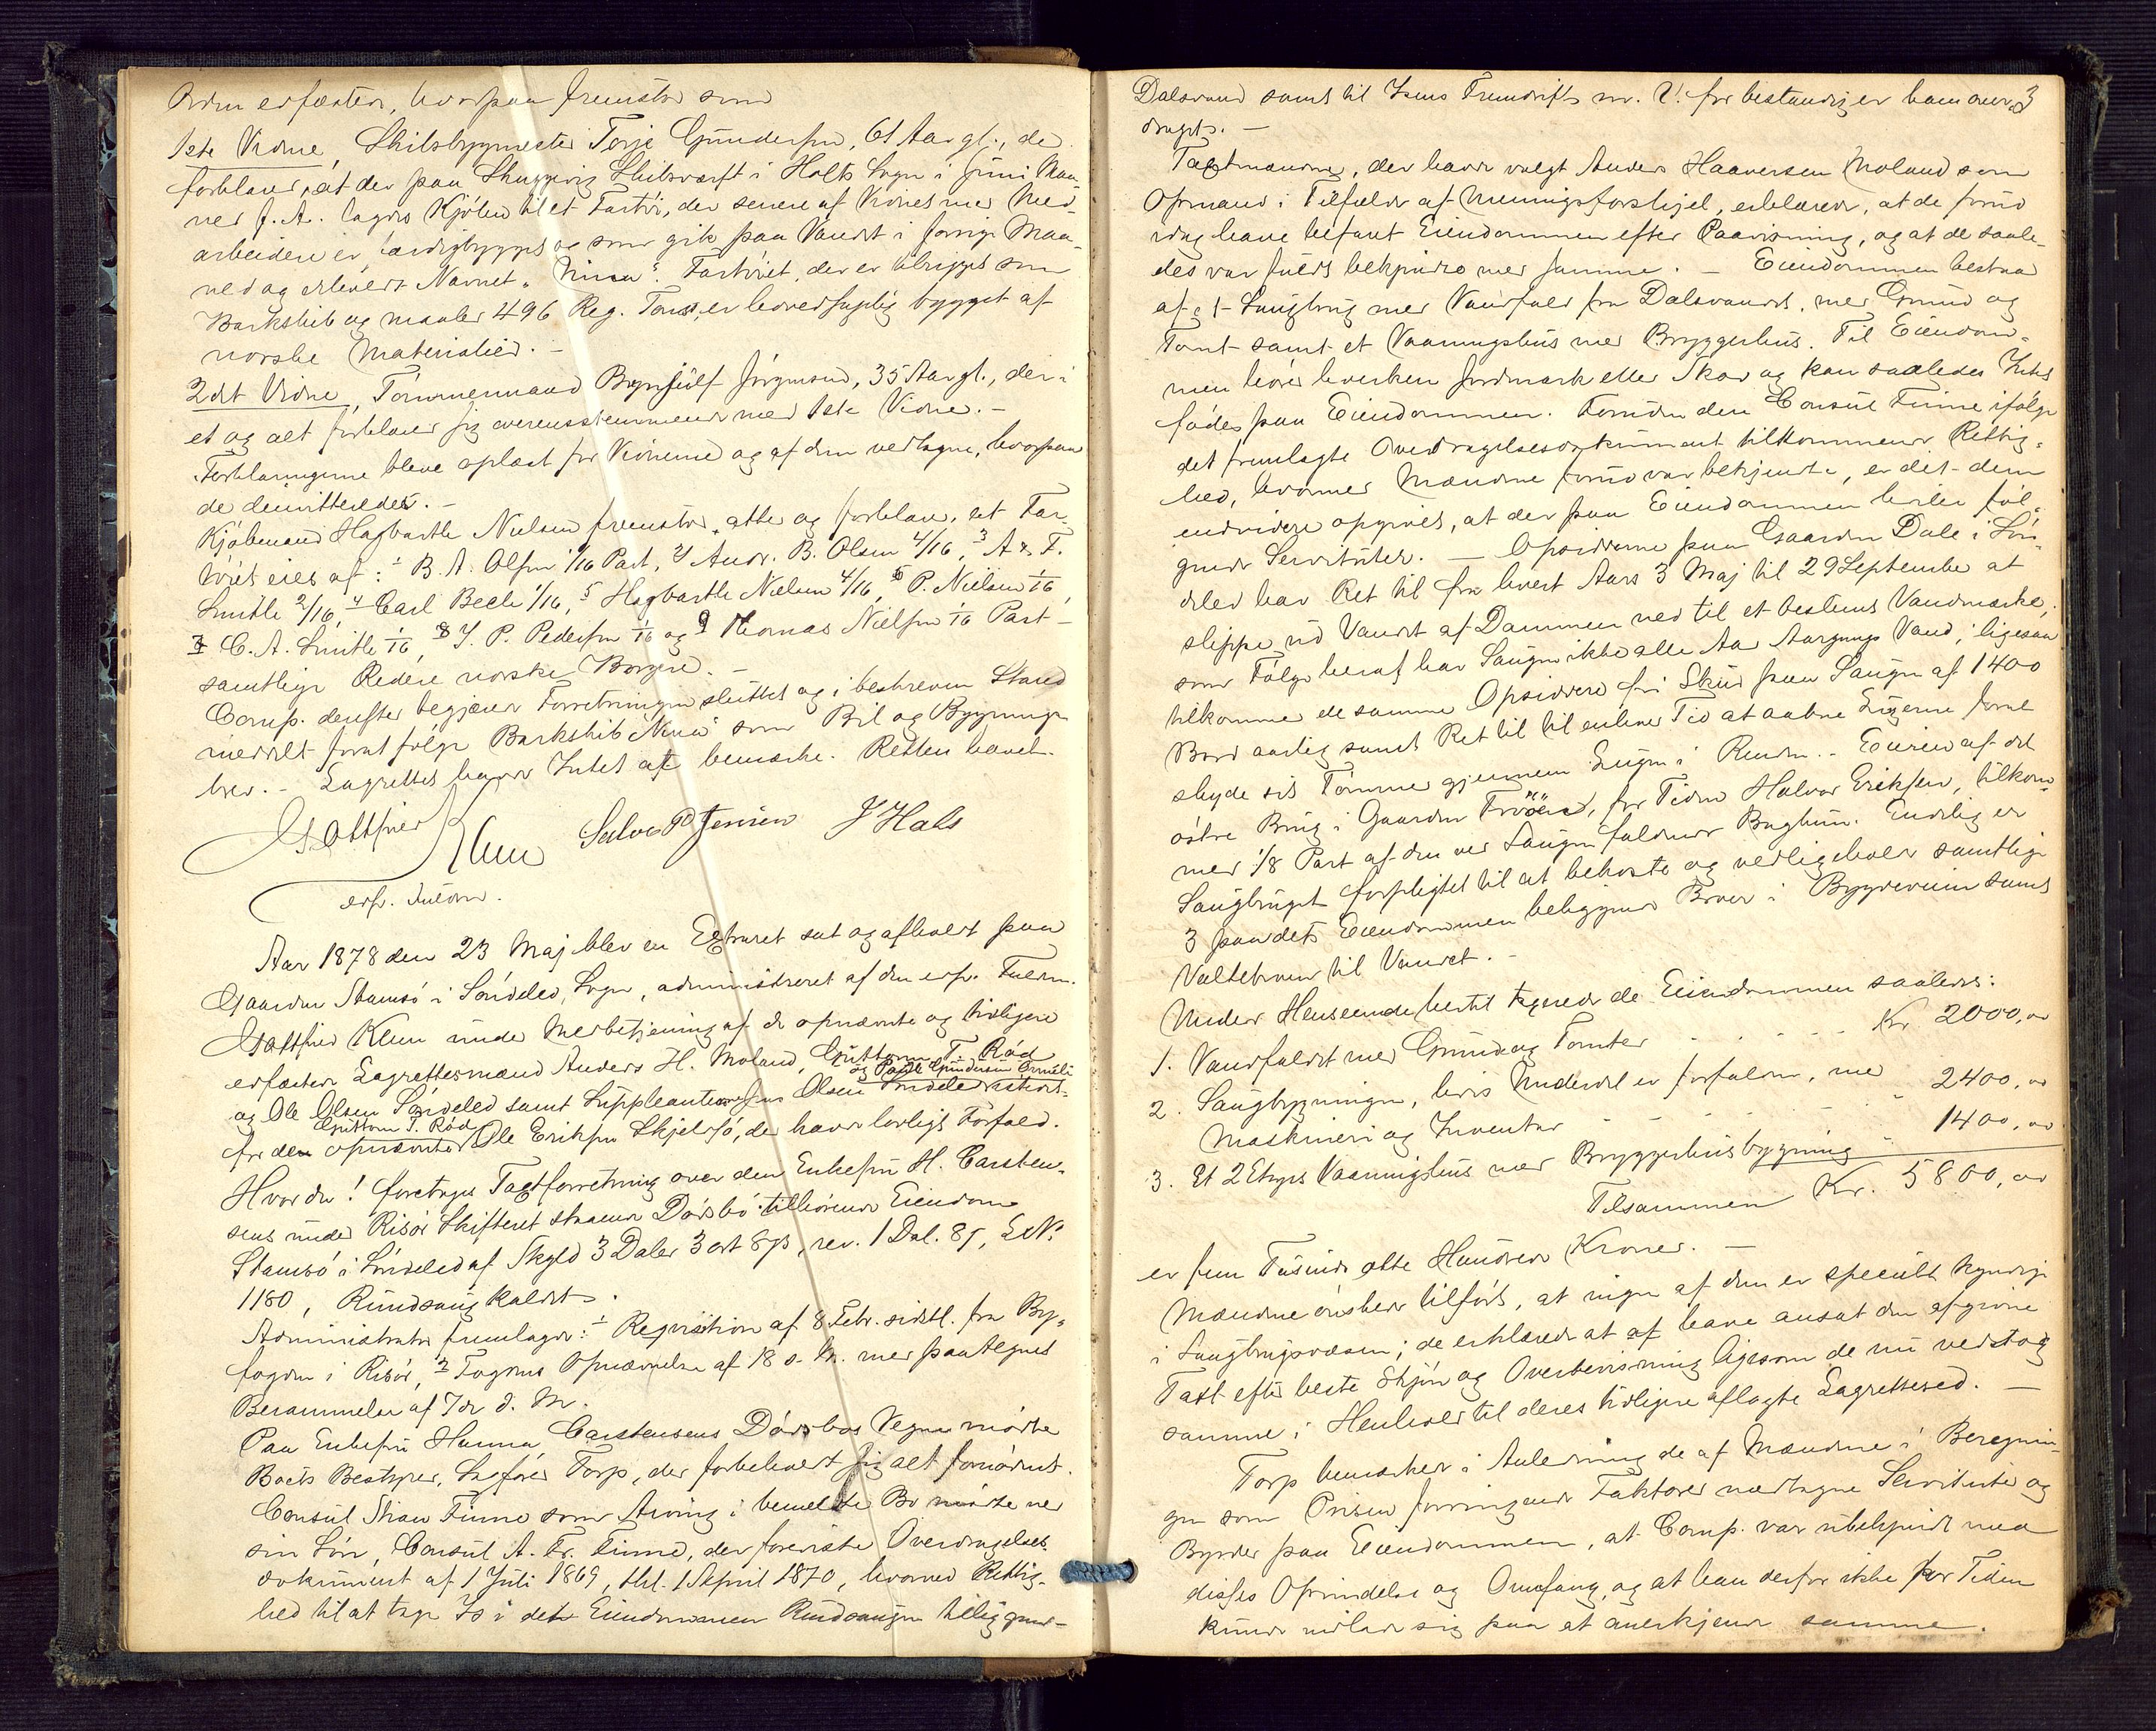 Orden edfæstede, hvorpaa fremstod som
1ste Vidne, Skibsbyggmester Terje Gundersen, 61 Aar gl., der
forklarer, at der paa Skuggevig Skibsværft i Holts Sogn i Juni Maa-
ned f. A. lagdes Kjølen til et Fartøi, der senere af Vidnet med Med-
arbeidere er færdigbygget og som gik paa Vandet i forrige Maa-
ned og erholdt Navnet „Nina“. Fartøiet, der er tilrigget som
Barkskib og maaler 496 Reg. Tons, er hovedsagelig bygget af
norske Materialier. –
2det Vidne, Tømmermand Brynjulf Jørgensen, 35 Aar gl., der i
et og alt forklarer sig overensstemmende med 1ste Vidne. –
Forklaringerne bleve oplæst for Vidnerne og af dem vedtagne, hvorpaa
de demitteredes. –
Kjøbmand Hagbarth Nielsen fremstod atter og forklarer, at Far-
tøiet eies af: 1 B. A. Olsen 1/16 Part, 2 Andr. B. Olsen 4/16, 3 A. F.
Smith 2/16, 4 Carl Bech 1/16, 5 Hagbarth Nielsen 4/16, 6 P. Nielsen 1/16,
7 C. A. Smith 1/16, 8 J. P. Pedersen 1/16 og 9 Thomas Nielsen 1/16 Part –
samtlige Redere norske Borgere. –
Comp. derefter begjærer Forretningen sluttet og i beskreven Stand
meddelt forat følge Barkskib „Nina“ som Bil og Bygnings-
brev. – Lagrettet havde Intet at bemærke. Retten hævet.
Gottfried Klem Salve P Jensen J Hals
edf. Fuldm.
Aar 1878 den 23 Maj blev en Extraret sat og afholdt paa
Gaarden Stamsø i Søndeled Sogn, administreret af den edf. Fuldm.
Gottfried Klem under Medbetjening af de opnævnte og tidligere
edfæstede Lagrettesmænd Anders H. Moland, Guttorm T. Rød
og Ole Olsen Søndeled samt Suppleanterne Jens Olsen Søndeled istedet-
for den opnævnte Guttorm T. Rød Ole Eriksen Skjelsø, der havde lovligt Forfald.
Hvorda! foretoges Taxtforretning over den Enkefru H. Carsten-
sens under Risør Skifteret staaende Dødsbo tilhørende Eiendom
Stamsø i Søndeled af Skyld 3 Daler 3 ort 8 ß, rev. 1 Dal. 8 ß, L. N.
1180, Rundsaug kaldet.
Administrator fremlagde: 1 Requisition af 8 Febr. sidstl. fra By-
fogden i Risør, 2 Fogdens Opnævnelse af 18 s. M. med paategnet
Berammelse af 7de d. M.
Paa Enkefru Hanna Carstensens Dødsbos Vegne mødte
Boets Bestyrer, Sagfører Torp, der forbeholdt sig alt fornødent.
Consul Stian Finne som Arving i bemeldte Bo mødte ved
sin Søn, Consul A. Fr. Finne, der foreviste Overdragelses-
dokument af 1 Juli 1869, thl. 1 April 1870, hvorved Rettig-
hed til at tage Is i det Eiendommen Rundsaugen tilliggende
3
Dalsvand samt til Isens Fremdrift m. V. for bestandig er ham over-
draget. –
Taxtmændene, der havde valgt Anders Haaversen Moland som
Opmand i Tilfælde af Meningsforskjel, erklærede, at de forud
idag have befaret Eiendommen efter Paavisning, og at de saale-
des var fuldt bekjendt med samme. – Eiendommen bestaar
af et Saugbrug med Vandfald fra Dalsvandet, med Grund og
Tomt samt et Vaaningshus med Bryggerhus. Til Eiendom-
men hører hverken Jordmark eller Skov og kan saaledes Intet
fødes paa Eiendommen. Foruden den Consul Finne ifølge
det fremlagte Overdragelsesdokument tilkommende Rettig-
hed, hvormed Mændene forud var bekjendte, er det dem
endvidere opgivet, at der paa Eiendommen hviler føl-
gende Servituter. – Opsidderne paa Gaarden Dale i Søn-
deled har Ret til fra hvert Aars 3 Maj til 29 September at
slippe ud Vandet af Dammen ned til et bestemt Vandmærke,
som Følge heraf har Saugen ikke alle Aar Aargangs Vand; ligesaa
tilkommer de samme Opsiddere fri Skur paa Saugen af 1400
Bord aarlig samt Ret til til enhver Tid at aabne Lugerne forat
skyde sit Tømmer gjennem Lugen i Renden. – Eieren af det
østre Brug i Gaarden Trøen, for Tiden Halvor Eriksen, tilkom-
mer 1/8 Part af den ved Saugen faldende Baghun. Endelig er
Saugbruget forpligtet til at bekoste og vedligeholde samtlige
3 paa dets Eiendommen beliggende Broer i Bygdeveien samt
Væltebroen til Vandet. –
Under Henseende hertil taxerede de Eiendommen saaledes:
1. Vandfaldet med Grund og Tomter Kr. 2000,00
2. Saugbygningen, hvis Underdel er forfalden, med
Maskineri og Inventar 2400,00
3. Et 2 Etages Vaaningshus med Bryggerhusbygning 1400,00
Tilsammen Kr. 5800,00
er fem Tusinde otte Hundrede Kroner. –
Mændene ønskede tilført, at ingen af dem er specielt kyndige
i Saugbrugsvæsen; de erklærede at have ansat den afgivne
Taxt efter beste Skjøn og Overbevisning ligesom de nu vedstog
samme i Henhold til deres tidligere aflagte Lagrettesed. –
Torp bemærker i Anledning de af Mændene i Beregnin-
gen som Prisen forringende Faktorer medtagne Servituter og
Byrder paa Eiendommen, at Comp. var ubekjendt med
disses Oprindelse og Omfang, og at han derfor ikke for Tiden
kunde udlade sig paa at anerkjende samme.